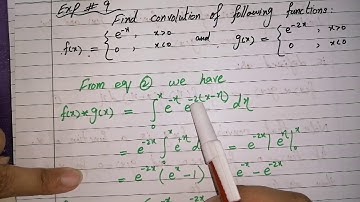 Exp # 9
Find convolution of following functions:
f(x) = { e^{-x} , x>0 and g(x) = { e^{-2x} , x>0
0 , x<0 0 , x<0
From eq ② we have
f(x)*g(x) = ∫_0^x e^{-η} e^{-2(x-η)} dη
= e^{-2x} ∫_0^x e^{η} dη = e^{-2x} |e^{η}|_0^x
= e^{-2x} (e^x - 1) = e^{-x} - e^{-2x}